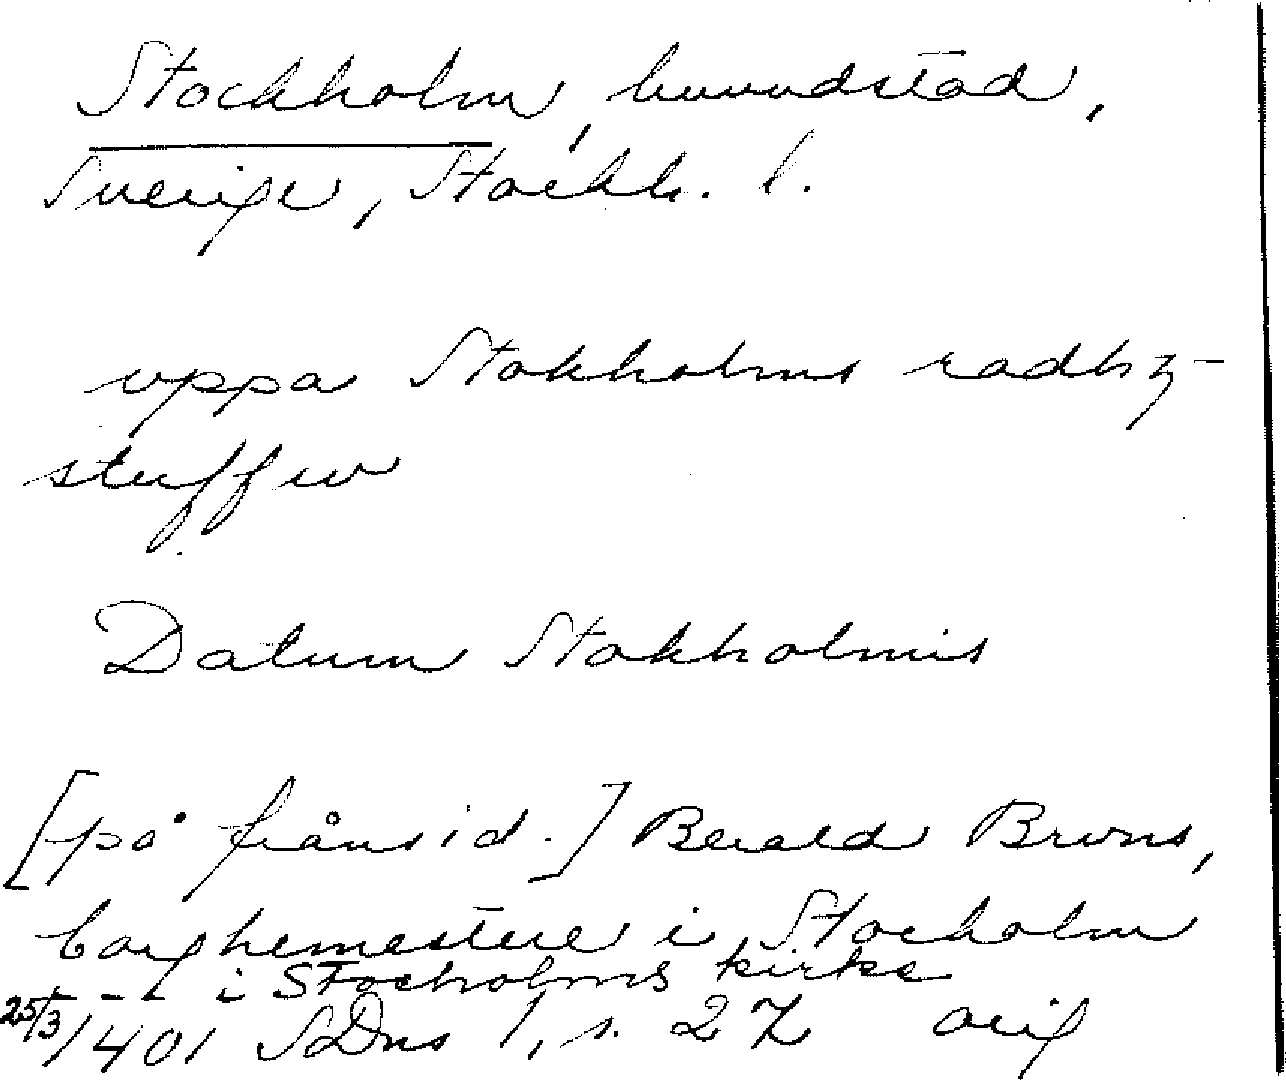 Stockholm, huvudstad,
Sverige, Stockh. l.
vppa Stokholms radhz-
stuffw
Datum Stokholmis
[på frånsid.] Berald Brwns,
borghemestere i Stocholm
--- i Stocholms kirke
25/3 1401 SDns 1, s. 27 orig